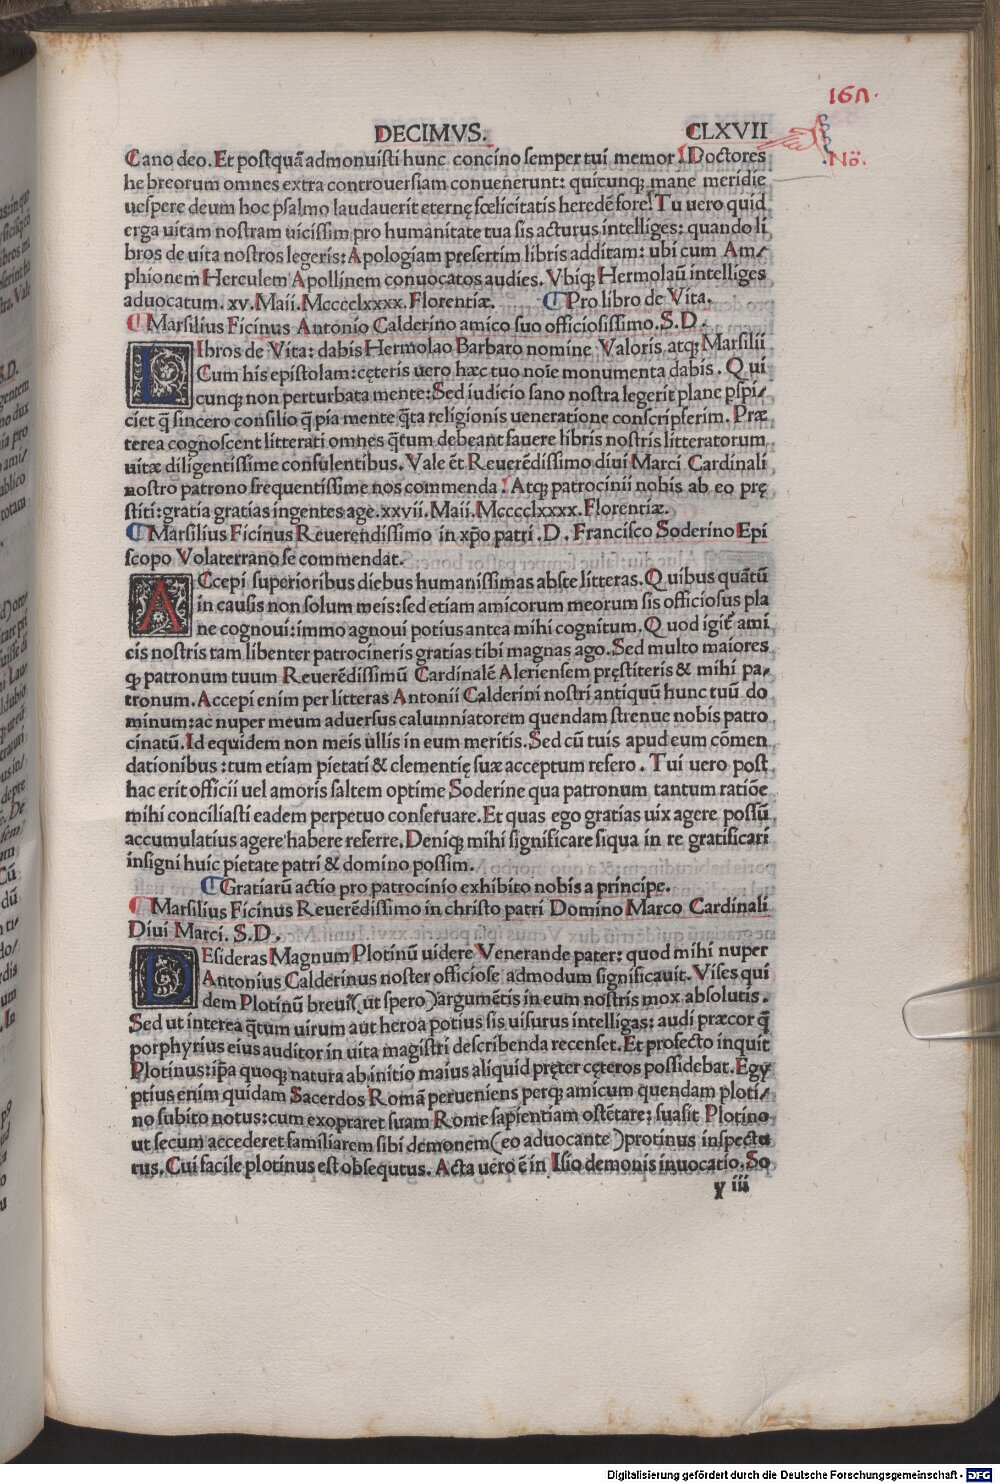 167.
DECIMVS. CLXVII
Nö.
Cano deo. Et postquã admonuisti hunc concino semper tui memor! Doctores
he breorum omnes extra controuersiam conuenerunt: quicunqꝫ mane meridie
uespere deum hoc psalmo laudauerit eternę fœlicitatis heredẽ fore! Tu uero quid
erga uitam nostram uicissim pro humanitate tua sis acturus intelliges: quando li
bros de uita nostros legeris: Apologiam presertim libris additam: ubi cum Am/
phionem Herculem Apollinem conuocatos audies. Vbiqꝫ Hermolaũ intelliges
aduocatum. xv. Maii. Mcccclxxxx. Florentiæ. ¶ Pro libro de Vita.
¶ Marsilius Ficinus Antonio Calderino amico suo officiosissimo. S. D.
LIbros de Vita: dabis Hermolao Barbaro nomine Valoris atqꝫ Marsilii
Cum his epistolam: cęteris uero hæc tuo noĩe monumenta dabis. Qui
cunqꝫ non perturbata mente: Sed iudicio sano nostra legerit plane pspi/
ciet q̃ sincero consilio q̃ pia mente q̃ta religionis ueneratione conscripserim. Præ
terea cognoscent litterati omnes q̃tum debeant fauere libris nostris litteratorum
uitæ diligentissime consulentibus. Vale et Reuerẽdissimo diui Marci Cardinali
nostro patrono frequentissime nos commenda! Atqꝫ patrocinii nobis ab eo prę
stiti: gratia gratias ingentes age. xxvii. Maii. Mcccclxxxx. Florentiæ.
¶ Marsilius Ficinus Reuerendissimo in xp̃o patri. D. Francisco Soderino Epi
scopo Volaterrano se commendat.
ACcepi superioribus diebus humanissimas abste litteras. Quibus quãtũ
in causis non solum meis: sed etiam amicorum meorum sis officiosus pla
ne cognoui: immo agnoui potius antea mihi cognitum. Quod igit̃ ami
cis nostris tam libenter patrocineris gratias tibi magnas ago. Sed multo maiores
ꝙ patronum tuum Reuerẽdissimũ Cardinalẽ Aleriensem pręstiteris & mihi pa-
tronum. Accepi enim per litteras Antonii Calderini nostri antiquũ hunc tuũ do
minum: ac nuper meum aduersus calumniatorem quendam strenue nobis patro
cinatũ. Id equidem non meis ullis in eum meritis. Sed cũ tuis apud eum cõmen
dationibus: tum etiam pietati & clementię suæ acceptum refero. Tui uero post
hac erit officii uel amoris saltem optime Soderine qua patronum tantum ratiõe
mihi conciliasti eadem perpetuo conseruare. Et quas ego gratias uix agere possũ
accumulatius agere habere referre. Deniqꝫ mihi significare siqua in re gratificari
insigni huic pietate patri & domino possim.
¶ Gratiarũ actio pro patrocinio exhibito nobis a principe.
¶ Marsilius Ficinus Reuerẽdissimo in christo patri Domino Marco Cardinali
Diui Marci. S. D.
DEsideras Magnum Plotinũ uidere Venerande pater: quod mihi nuper
Antonius Calderinus noster officiose admodum significauit. Vises qui
dem Plotinũ breui (ut spero) argumẽtis in eum nostris mox absolutis.
Sed ut interea q̃tum uirum aut heroa potius sis uisurus intelligas: audi præcor q̃
porphyrius eius auditor in uita magistri describenda recenset. Et profecto inquit
Plotinus: ip̃a quoqꝫ natura ab initio maius aliquid pręter cęteros possidebat. Egy
ptius enim quidam Sacerdos Romã perueniens perqꝫ amicum quendam ploti/
no subito notus: cum exoptaret suam Rome sapientiam ostẽtare: suasit Plotino
ut secum accederet familiarem sibi demonem (eo aduocante) protinus inspectu
rus. Cui facile plotinus est obsequtus. Acta uero ẽ in Isio demonis inuocatio. So
y iii
Digitalisierung gefördert durch die Deutsche Forschungsgemeinschaft - DFG